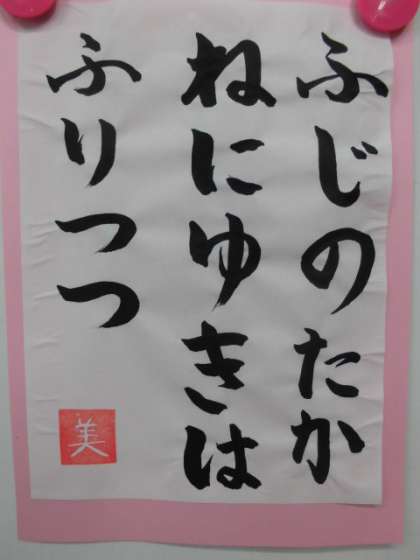 ふじのたか
ねにゆきは
ふりつつ
美